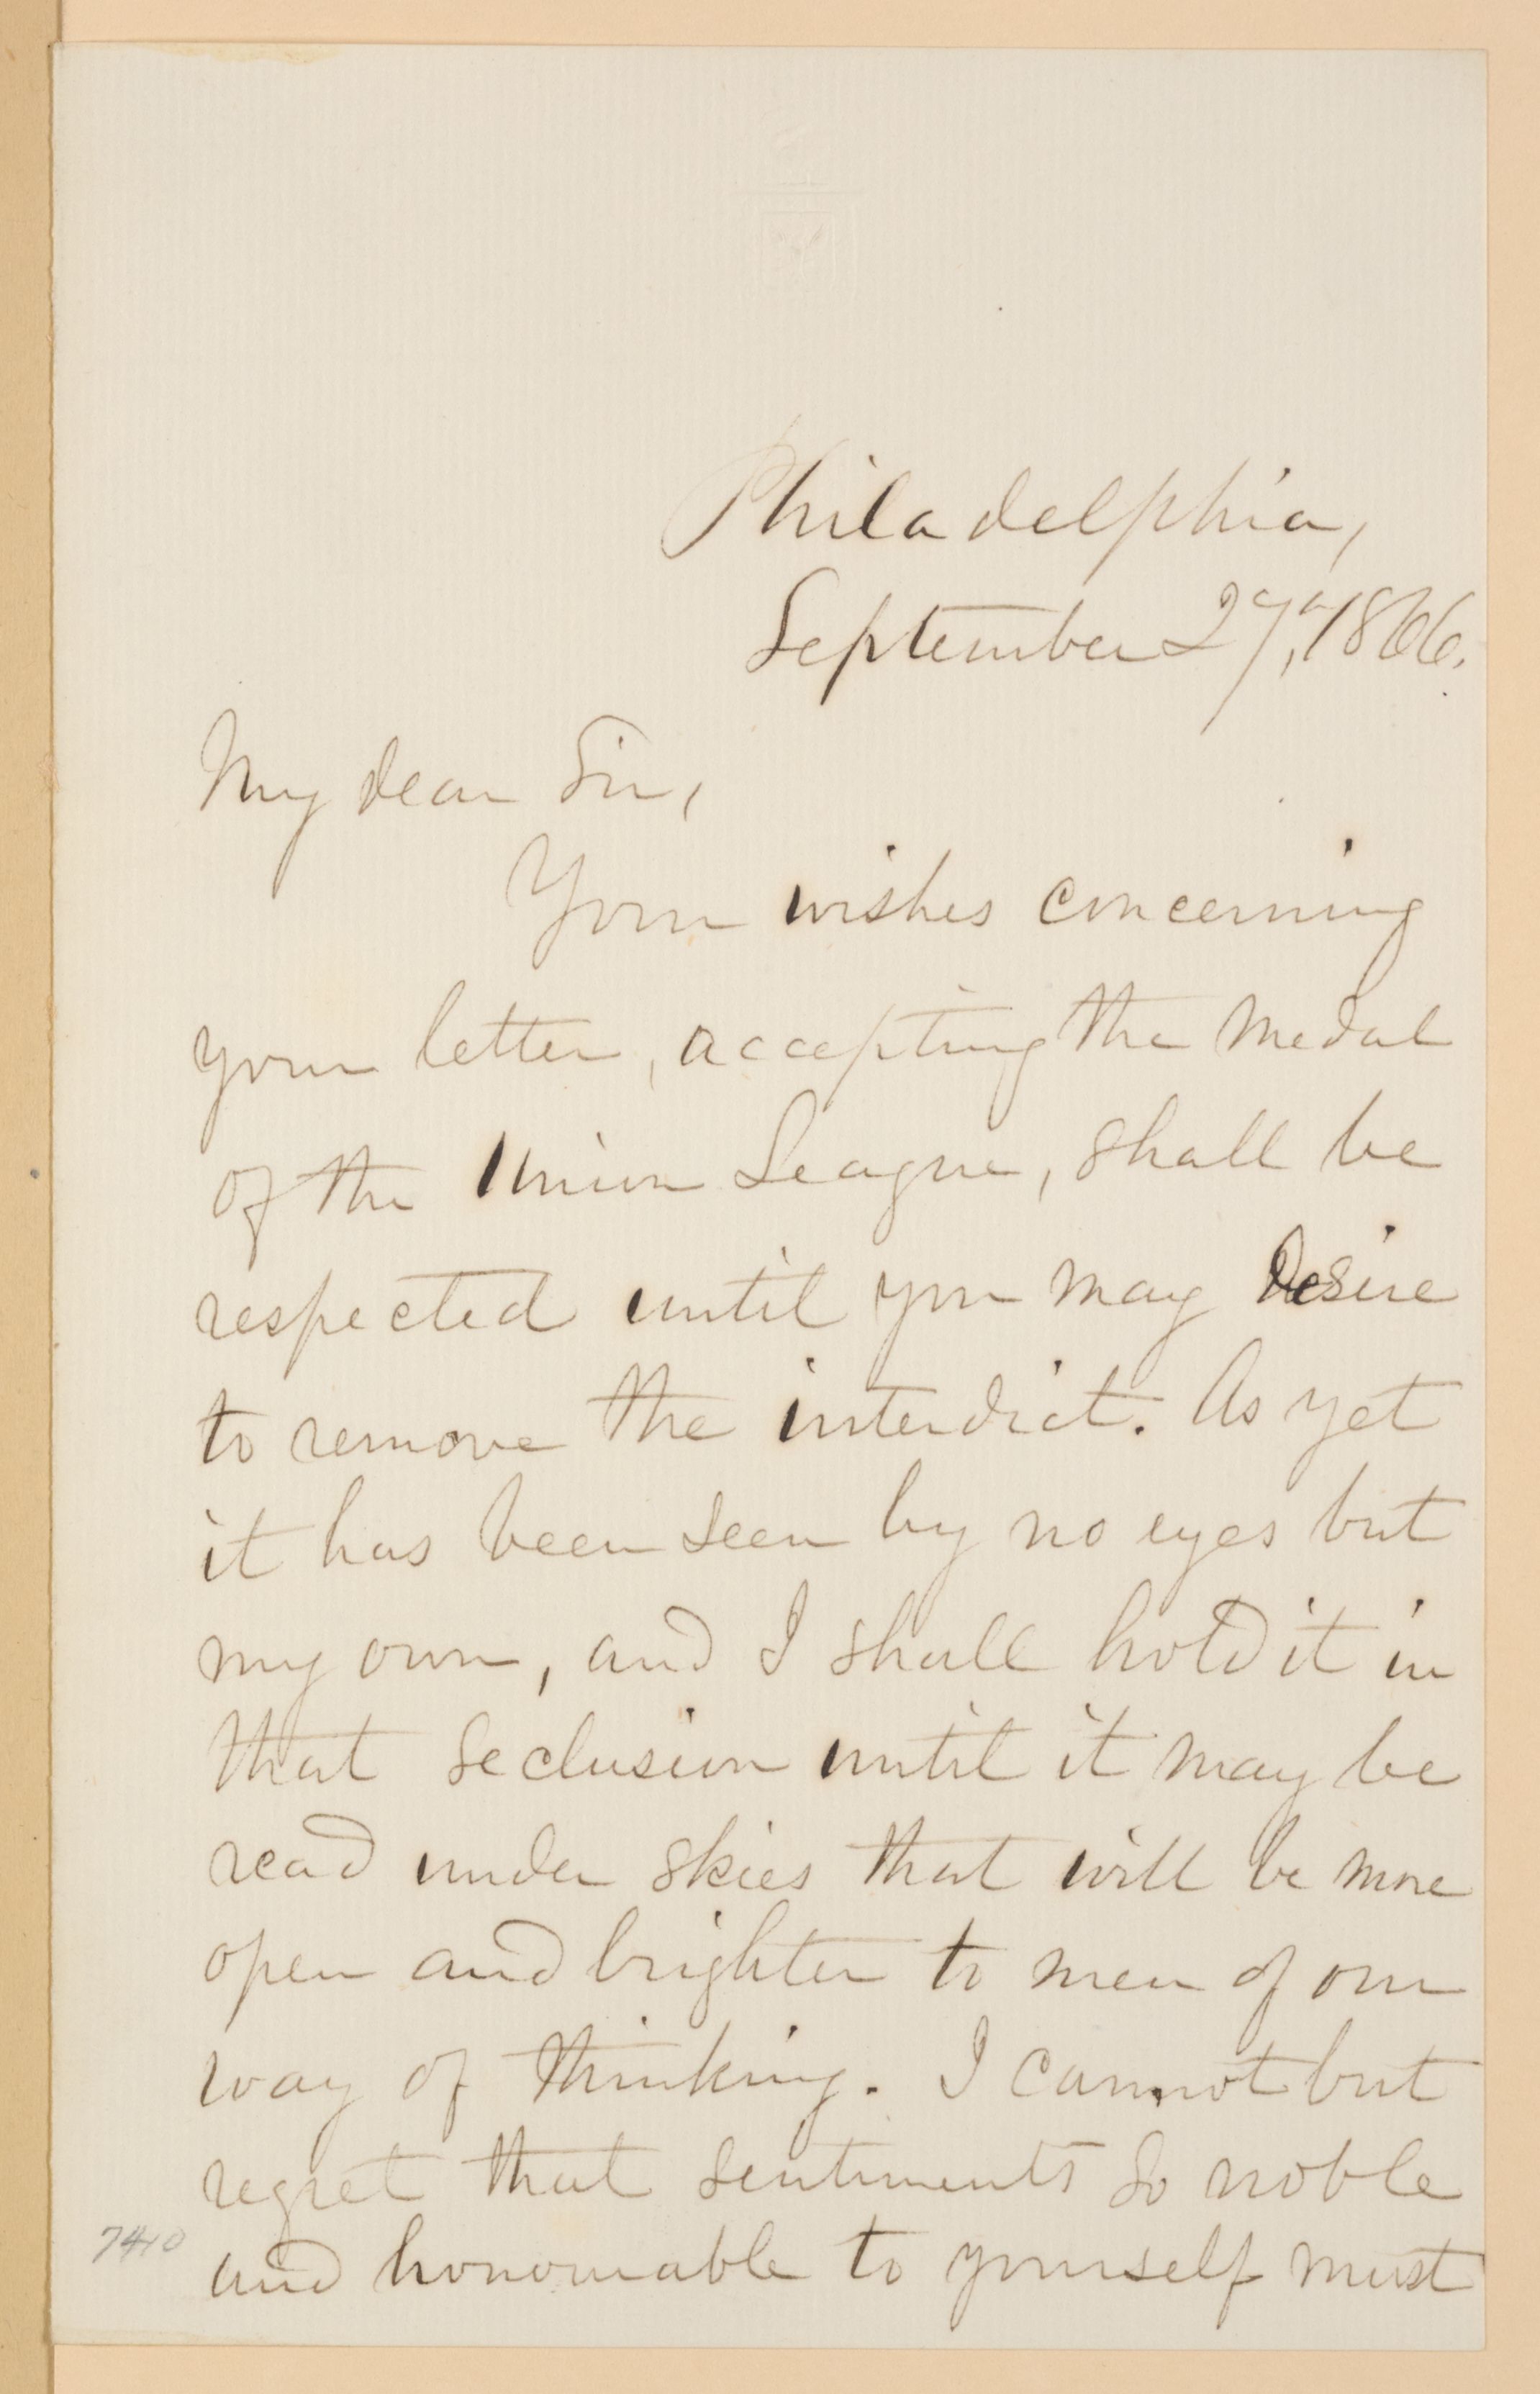 Philadelphia,
September 27, 1866.
My dear Sir,
Your wishes concerning
your letter, accepting the medal
of the Union League, shall be
respected until you may desire
to remove the interdict. As yet
it has been seen by no eyes but
my own, and I shall hold it in
that seclusion until it may be
read under skies that will be more
open and brighter to men of our
way of thinking. I cannot but
regret that sentiments so noble
and honourable to yourself must
7410